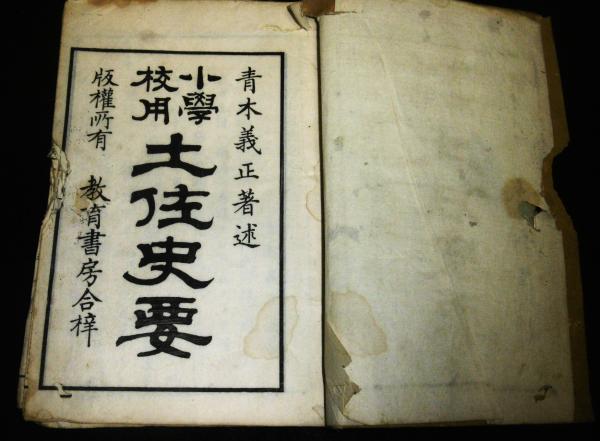 青木義正著述
小學
校用
土佐史要
版權所有
教育書房合梓